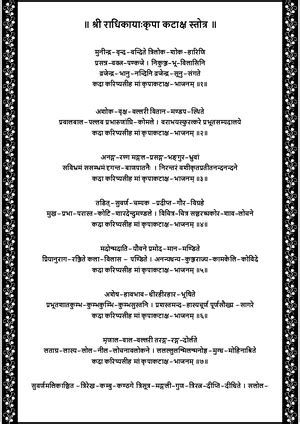 ॥ श्री राधिकायाःकृपा कटाक्ष स्तोत्र ॥
मुनीन्द्र-वृन्द-वन्दिते त्रिलोक-शोक-हारिणि
प्रसन्न-वक्त्र-पण्कजे । निकुञ्ज-भू-विलासिनि
व्रजेन्द्र-भानु-नन्दिनि व्रजेन्द्र-सूनु-संगते
कदा करिष्यसीह मां कृपाकटाक्ष-भाजनम् ॥१॥
अशोक-वृक्ष-वल्लरी वितान-मण्डप-स्थिते
प्रवालबाल-पल्लव प्रभारुणांघ्रि-कोमले । वराभयस्फुरत्करे प्रभूतसम्पदालये
कदा करिष्यसीह मां कृपाकटाक्ष-भाजनम् ॥२॥
अनङ्ग-रण्ग मङ्गल-प्रसङ्ग-भङ्गुर-भ्रुवां
सविभ्रमं ससम्भ्रमं दृगन्त-बाणपातनैः । निरन्तरं वशीकृतप्रतीतनन्दनन्दने
कदा करिष्यसीह मां कृपाकटाक्ष-भाजनम् ॥३॥
तडित्-सुवर्ण-चम्पक-प्रदीप्त-गौर-विग्रहे
मुख-प्रभा-परास्त-कोटि-शारदेन्दुमण्डले । विचित्र-चित्र सञ्चरच्चकोर-शाव-लोचने
कदा करिष्यसीह मां कृपाकटाक्ष-भाजनम् ॥४॥
मदोन्मदाति-यौवने प्रमोद-मान-मण्डिते
प्रियानुराग-रञ्जिते कला-विलास - पण्डिते । अनन्यधन्य-कुञ्जराज्य-कामकेलि-कोविदे
कदा करिष्यसीह मां कृपाकटाक्ष-भाजनम् ॥५॥
अशेष-हावभाव-धीरहीरहार-भूषिते
प्रभूतशातकुम्भ-कुम्भकुम्भि-कुम्भसुस्तनि । प्रशस्तमन्द-हास्यचूर्ण पूर्णसौख्य -सागरे
कदा करिष्यसीह मां कृपाकटाक्ष-भाजनम् ॥६॥
मृणाल-वाल-वल्लरी तरङ्ग-रङ्ग-दोर्लते
लताग्र-लास्य-लोल-नील-लोचनावलोकने । ललल्लुलन्मिलन्मनोज्ञ-मुग्ध-मोहिनाश्रिते
कदा करिष्यसीह मां कृपाकटाक्ष-भाजनम् ॥७॥
सुवर्णमलिकाञ्चित -त्रिरेख-कम्बु-कण्ठगे त्रिसूत्र-मङ्गली-गुण-त्रिरत्न-दीप्ति-दीधिते । सलोल-